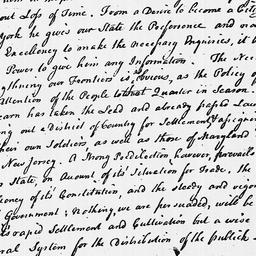 out Loss of Time. From a Desire to become a Citi
York he gives our State the Preference and
Excellency to make the necessary Enquiries, it
Power to give him any Information. The Nec
gthening our Frontiers is obvious, as the Policy of
Attention of the People to that Quarter in Season.
has taken the Lead and already passed Laws
ing out a District of Country for Settlement, & assigning
their own Soldiers, as well as those of Maryland
New Jersey. A strong Predilection however, prevails
State, on Account of its Situation for Trade, the
iency of its Constitution, and the steady and vigor
Government; Nothing, we are persuaded, will be
rapid Settlement and Cultivation but a wise
ral System for the Distribution of the publick